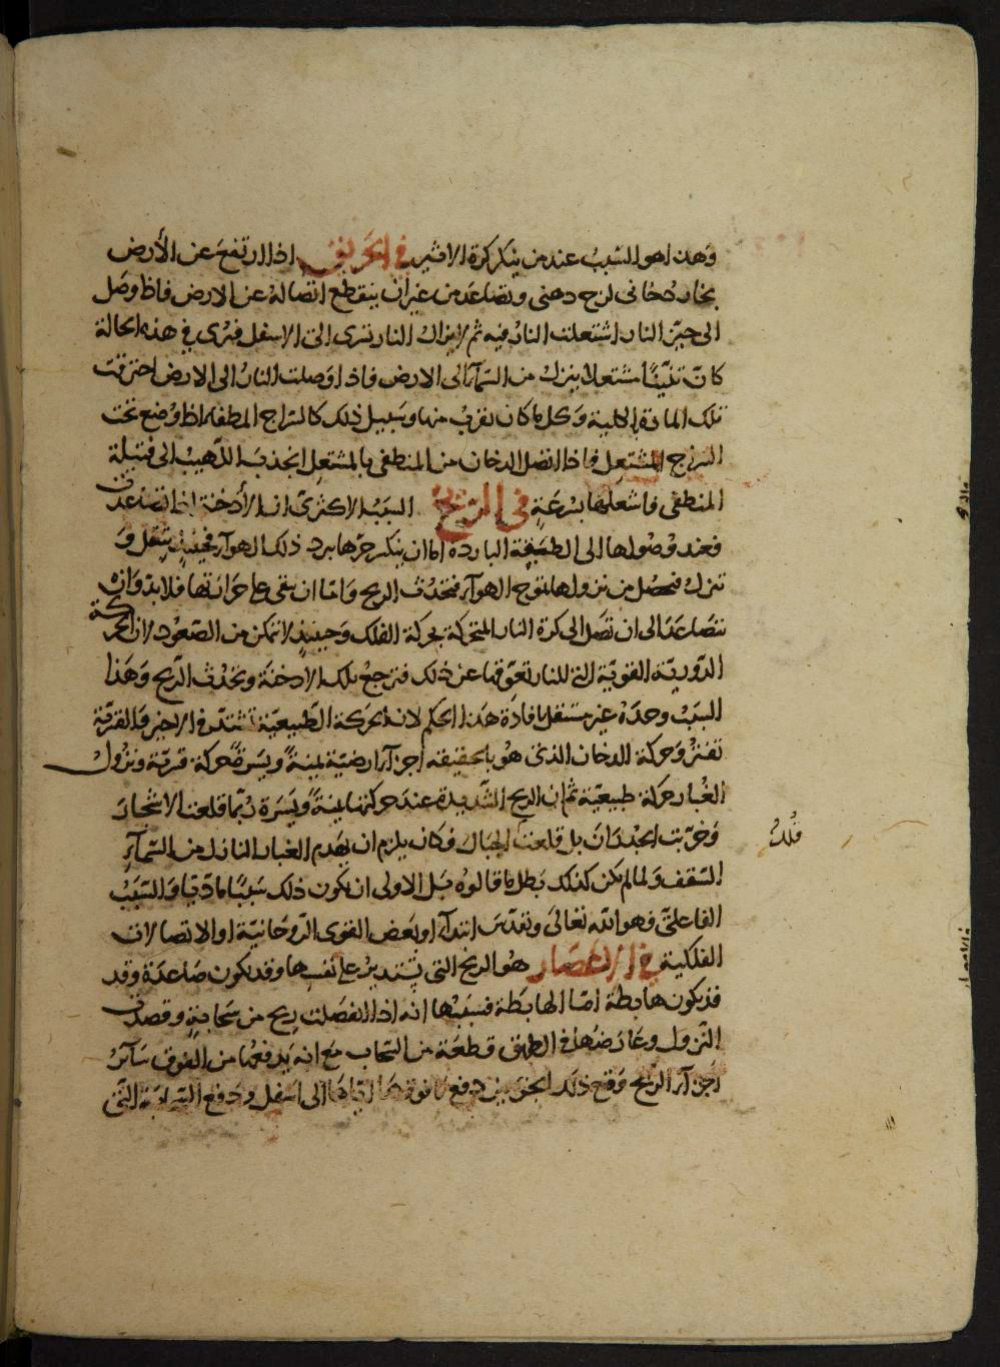 وهذا هو السبب عند من ينكر كرة الاثير في الحريق اذا ارتفع عن الأرض
بخار دخانى لزج دهنى وتصاعد من غير ان ينقطع اتصاله عن الارض فاذا وصل
الى حيز النار اشتعلت النار فيه ثم لا يزال النار تسرى الى الاسفل فترى في هذه الحالة
كان تنينًا مشتعلا ينزل من السمآء الى الارض فاذا وصلت النار الى الارض احترقت
تلك المادة بالكلية وكل ما كان يقرب منها وسبيل ذلك كالسراج المطفا اذا وضع تحت
السرج المشتعل فاذا اتصل الدخان من المنطفى بالمشتعل انجذب اللهيب الى فتيلة
المنطفى فاشعلها بسرعة في الريح السبب الاكثرى ان الأدخنة اذا تصعدت
فعند وصولها الى الطبقة الباردة اما ان ينكسر حرها ببرد ذلك الهوآء فحينئذ يثقل و
تنزل فيحصل من نزولها تموج الهوآء فتحدث الريح واما ان تبقى على حرارتها فلا بد وان
تتصاعد الى ان تصل الى كرة النار المتحركة بحركة الفلك وحينئذ لا تمكن من الصعود لان الحركة
الدورية القوية التى للنار تعوقها عن ذلك فترجع تلك الادخنة وتحدث الريح وهذا
السبب وحده غير مستقل بافادة هذا الحكم لان الحركة الطبيعية تشتد في الاخير والقرية
تفتر وحركة الدخان الذى هو بالحقيقة اجزآء ارضية يمنة ويسرة حركة قرية ونزول
الغبار حركة طبيعية ثم ان الريح الشديدة عند حركتها يمنة ويسرة ربما قلعت الاشجار
وخربت الجدران بل قلعت الجبال فكان يلزم ان يهدم الغبار النازل من السمآء
قلل
السقف ولما لم يكن كذلك بطل ما قالوه بل الاولى ان يكون ذلك سببًا ماديا والسبب
الفاعلى فهو الله تعالى وتقدس ابتدآء او بعض القوى الروحانية او الاتصالات
الفلكية في الاعصار هو الريح التى تستدير على نفسها وقد يكون صاعدة وقد
قد يكون هابطة اما الهابطة فسببها انه اذا انفصلت ريح من سحابة وقصدت
النزول وعارضها في الطريق قطعة من السحاب مع انه يدفعها من الفوق سآئر
اجزآء الريح وقع ذلك الجزء بين دفع ما فوقها اياها الى اسفل ودفع السحابة التى